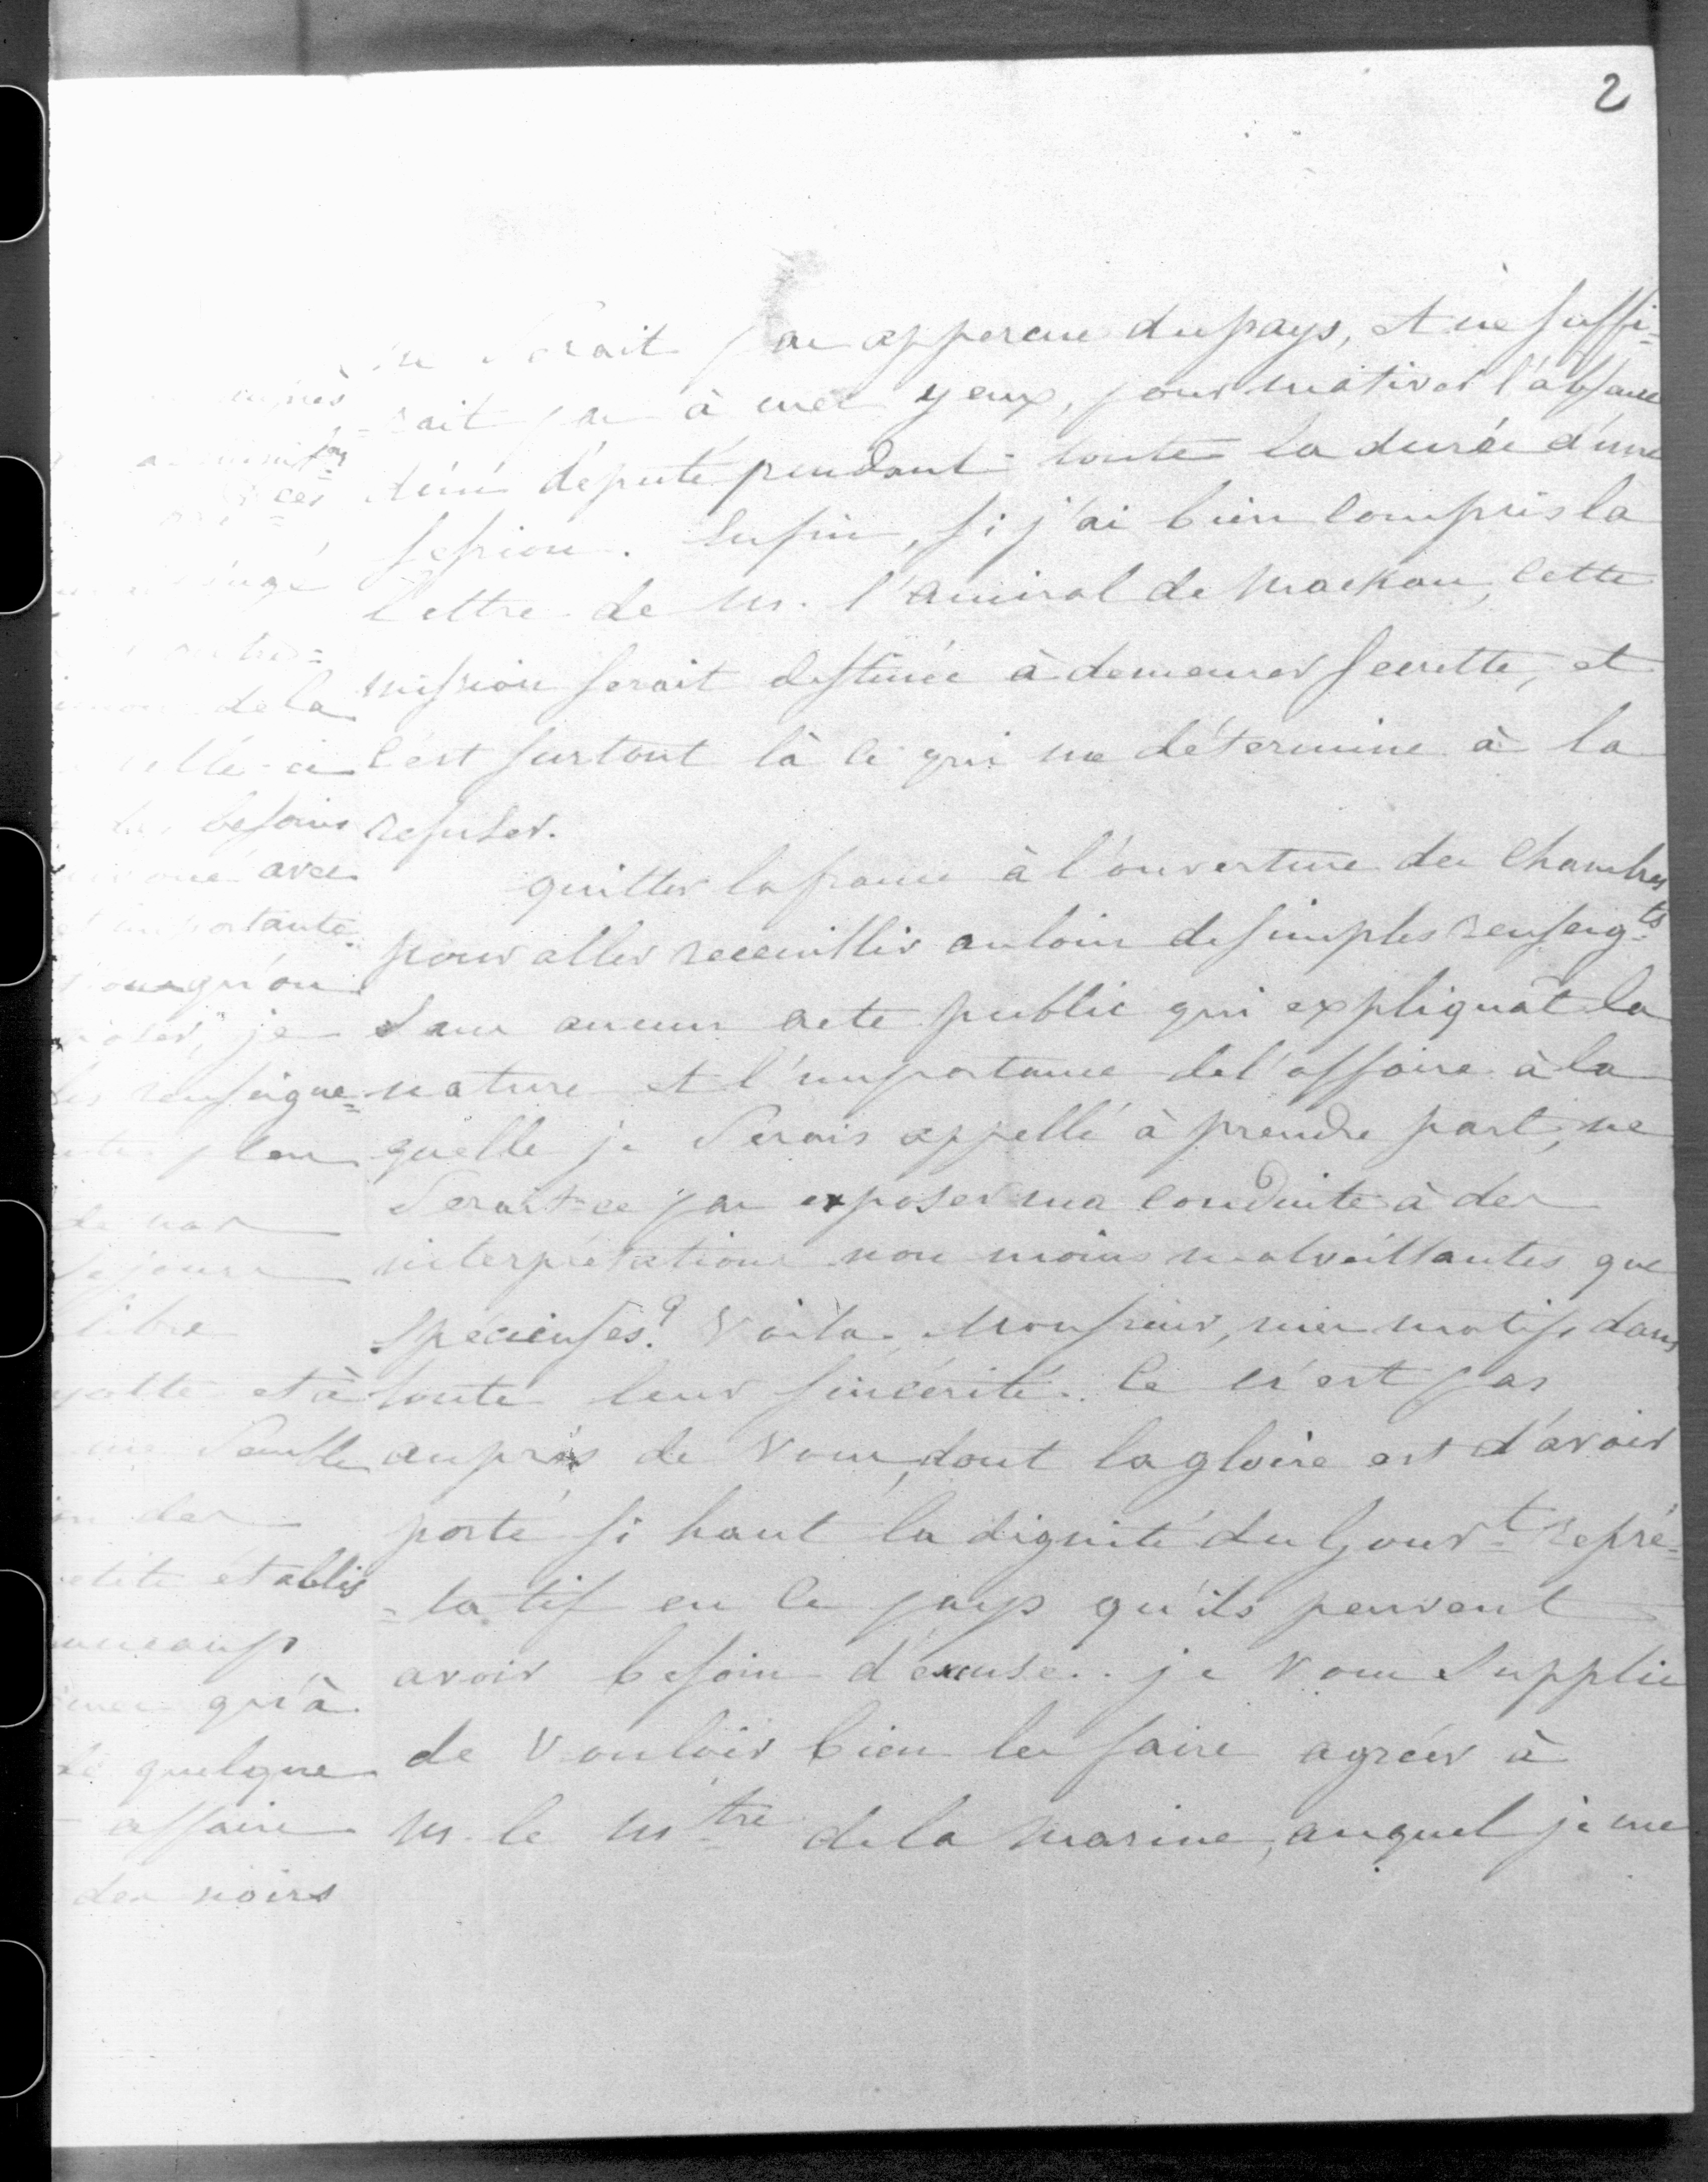 2
serait pas apperçue du pays, et ne suffi=
=rait pas à mes yeux, pour motiver l'absence
d'un député pendant toute la durée d'une
session. Enfin, si j'ai bien compris la
lettre de M. l'amiral de Mackau, cette
mission serait destinée à demeurer secrette, et
c'est surtout là ce qui me détermine à la
refuser.
quitter la france à l'ouverture des Chambres
pour aller receuillir au loin de simples renseigts
sans aucun acte public qui expliquât la
nature et l'importance de l'affaire à la
quelle je serais appellé à prendre part, ne
serait-ce pas exposer ma conduite à des
interprétations non moins malveillantes que
spécieuses? Voila, Monsieur, mes motifs dans
toute leur sincérité. Ce n'est pas
auprès de vous, dont la gloire est d'avoir
porté si haut la dignité du Gouvt repré=
=tatif en ce pays qu'ils peuvent
avoir besoin d'excuse.. je vous supplie
de vouloir bien les faire agréer à
M. le Mtre de la marine, auquel je me
de la
celle-ci
besoins
avec
qu'on
je
les renseigne=
plan
de nos
séjours
libre
et à
me semble
des
établis
qu'à
de quelque
affaire
des noirs